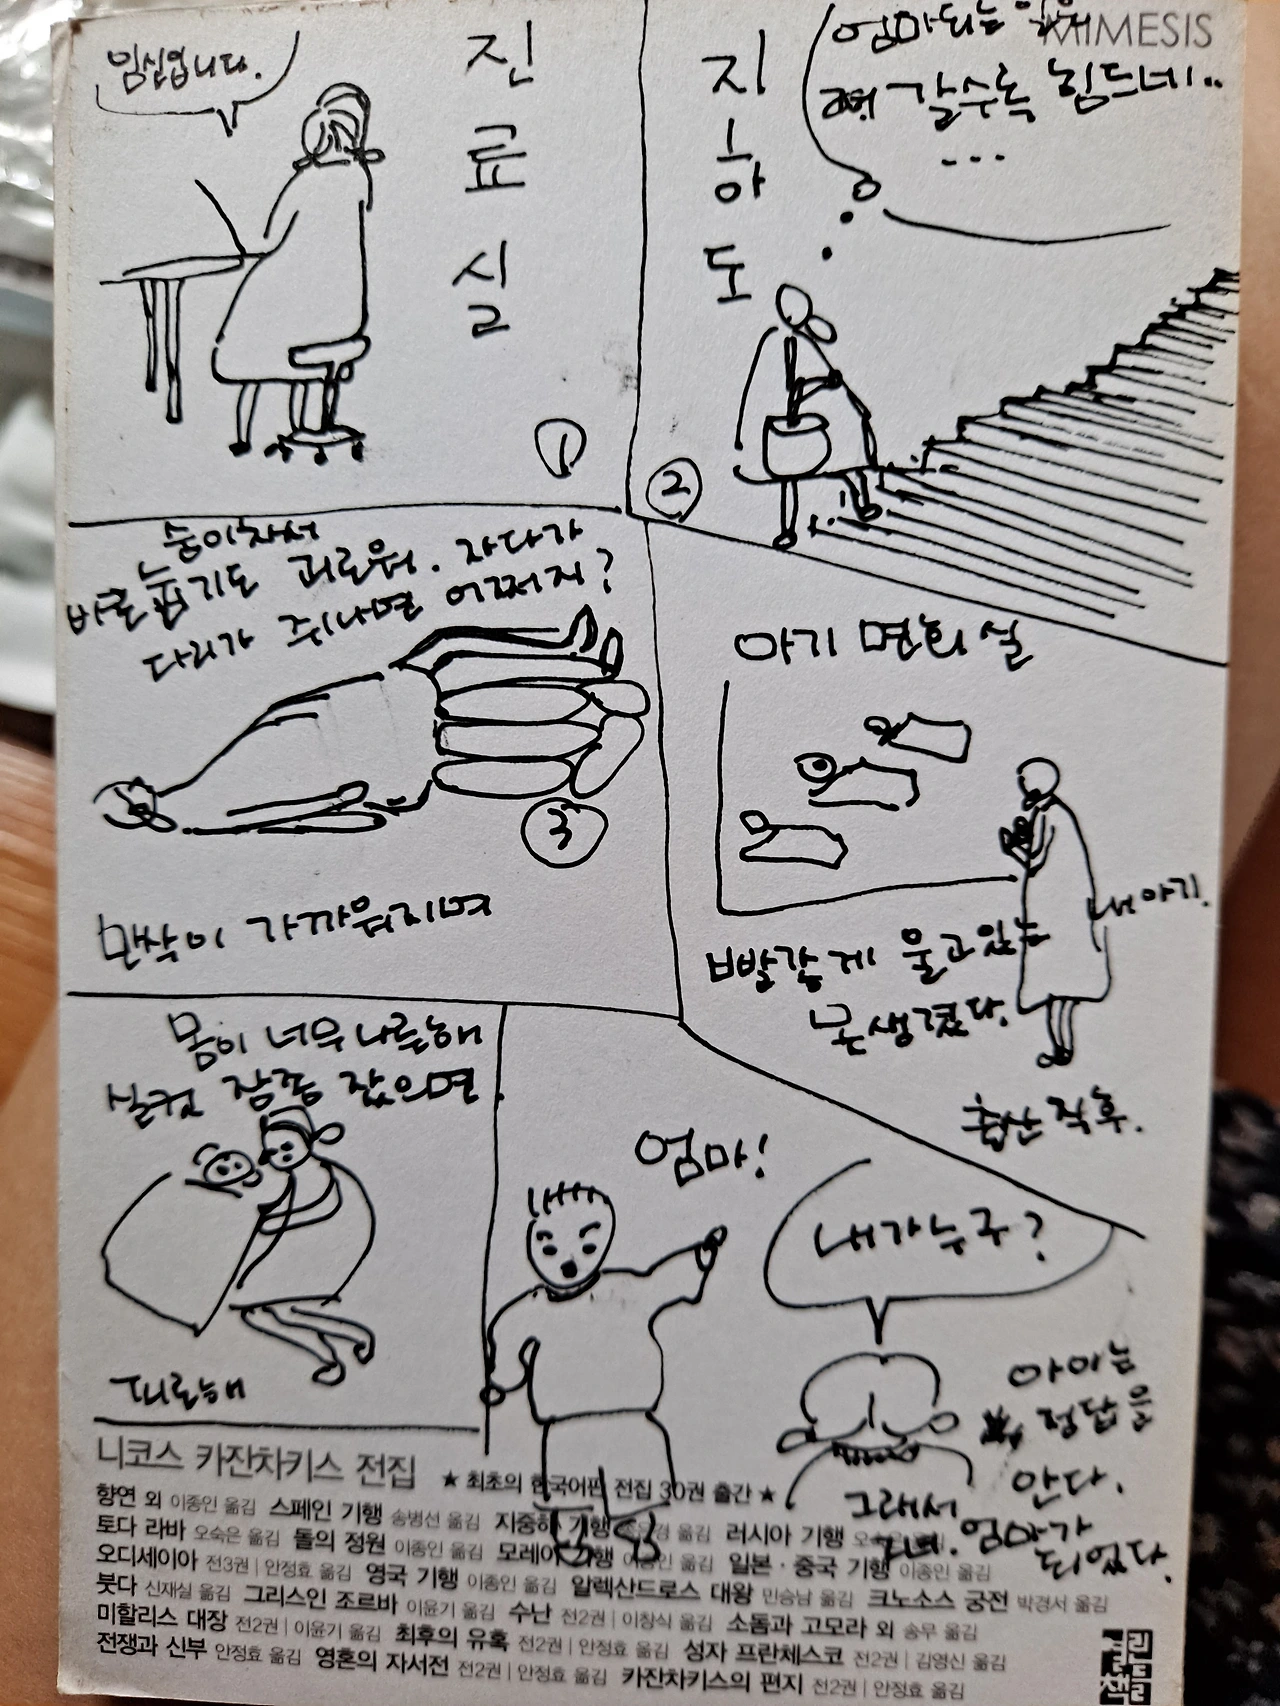 임신입니다.
진
료
실
①
MIMESIS
지
하
도
엄마되는
갈수록 힘드네..
...
②
숨이차서
바로 눕기도 괴로워. 자다가
다리가 쥐나면 어쩌지?
③
만삭이 가까워지며
아기 면회실
내 아기.
빨갛게 울고있는
못생겼다.
출산 직후.
몸이 너무 나른해
실컷 잠좀 잤으면.
피로해
엄마!
내가 누구?
아이는
정답을
안다.
그래서
그녀. 엄마가
되었다.
니코스 카잔차키스 전집 ★ 최초의 한국어판 전집 30권 출간 ★
향연 외 이종인 옮김 스페인 기행 송병선 옮김 지중해 기행 옮김 러시아 기행
토다 라바 오숙은 옮김 돌의 정원 이종인 옮김 모레아 기행 이종인 옮김 일본·중국 기행 이종인 옮김
오디세이아 전3권 | 안정효 옮김 영국 기행 이종인 옮김 알렉산드로스 대왕 민승남 옮김 크노소스 궁전 박경서 옮김
붓다 신재실 옮김 그리스인 조르바 이윤기 옮김 수난 전2권 | 이창식 옮김 소돔과 고모라 외 송무 옮김
미할리스 대장 전2권 | 이윤기 옮김 최후의 유혹 전2권 | 안정효 옮김 성자 프란체스코 전2권 | 김영신 옮김
전쟁과 신부 안정효 옮김 영혼의 자서전 전2권 | 안정효 옮김 카잔차키스의 편지 전2권 | 안정효 옮김
열린책들